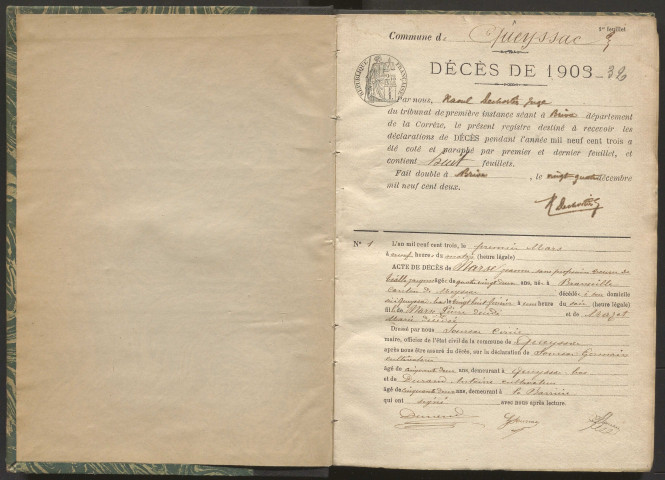 1er feuillet
Commune de Queyssac
DÉCÈS DE 1903
RÉPUBLIQUE FRANÇAISE
Par nous, Raoul juge
du tribunal de première instance séant à Brive département
de la Corrèze, le présent registre destiné à recevoir les
déclarations de DÉCÈS pendant l'année mil neuf cent trois a
été coté et paraphé par premier et dernier feuillet, et
contient huit feuillets.
Fait double à Brive, le vingt quatre décembre
mil neuf cent deux.
No 1 L'an mil neuf cent trois, le premier Mars
à neuf heures du matin (heure légale)
ACTE DE DÉCÈS de sans profession
âgé de quatre vingt ans, né à
canton de Meyssac décédé à son domicile
le vingt huit février à heure du soir (heure légale)
fil de Pierre et de
Marie
Dressé par nous
maire, officier de l'état civil de la commune de Queyssac
après nous être assuré du décès, sur la déclaration de Germain
cultivateur
âgé de cinquante deux ans, demeurant à Queyssac bas
et de Durand Antoine cultivateur
âgé de cinquante ans, demeurant à la
qui ont signé avec nous après lecture.
Durand